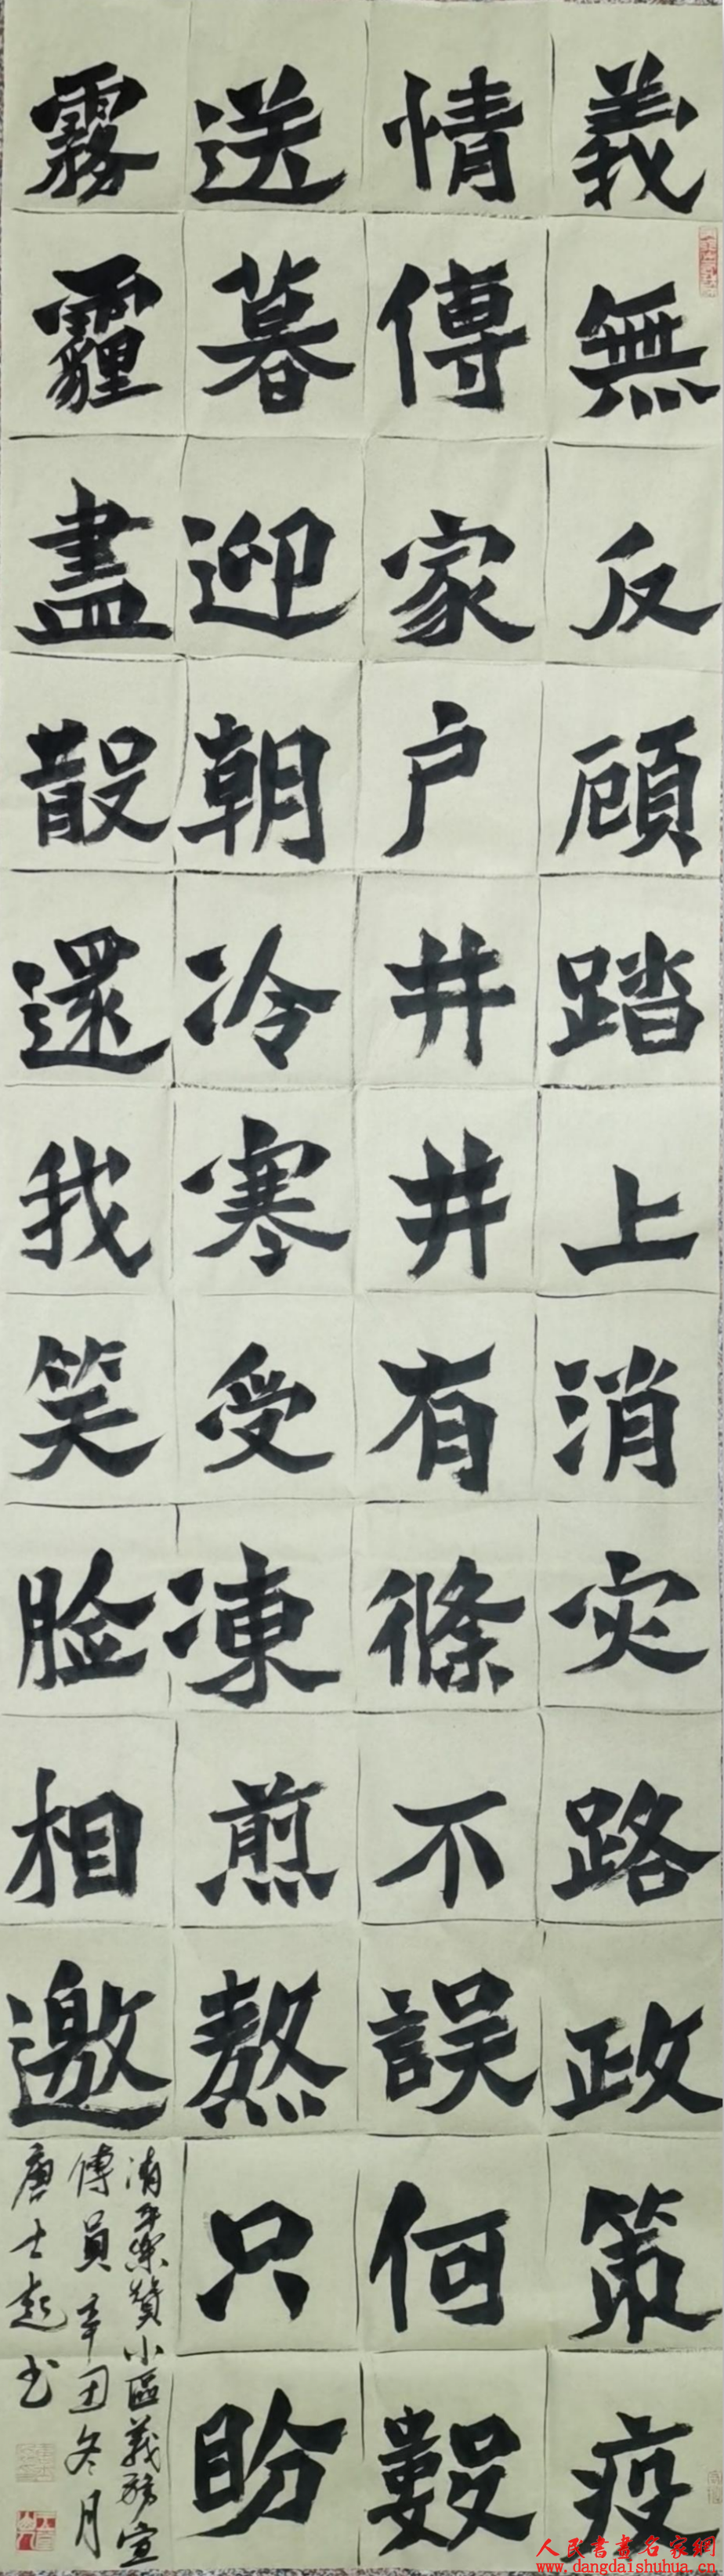 義無反顧踏上消灾路政策疫
情傳家户井井有條不誤何數
送暮迎朝冷寒受凍煎熬只盼
霧霾盡散還我笑脸相邀
清平樂贊小區義務宣
傳員辛丑冬月
唐士起书
人民書畫名家網
www.dangdaishuhua.com